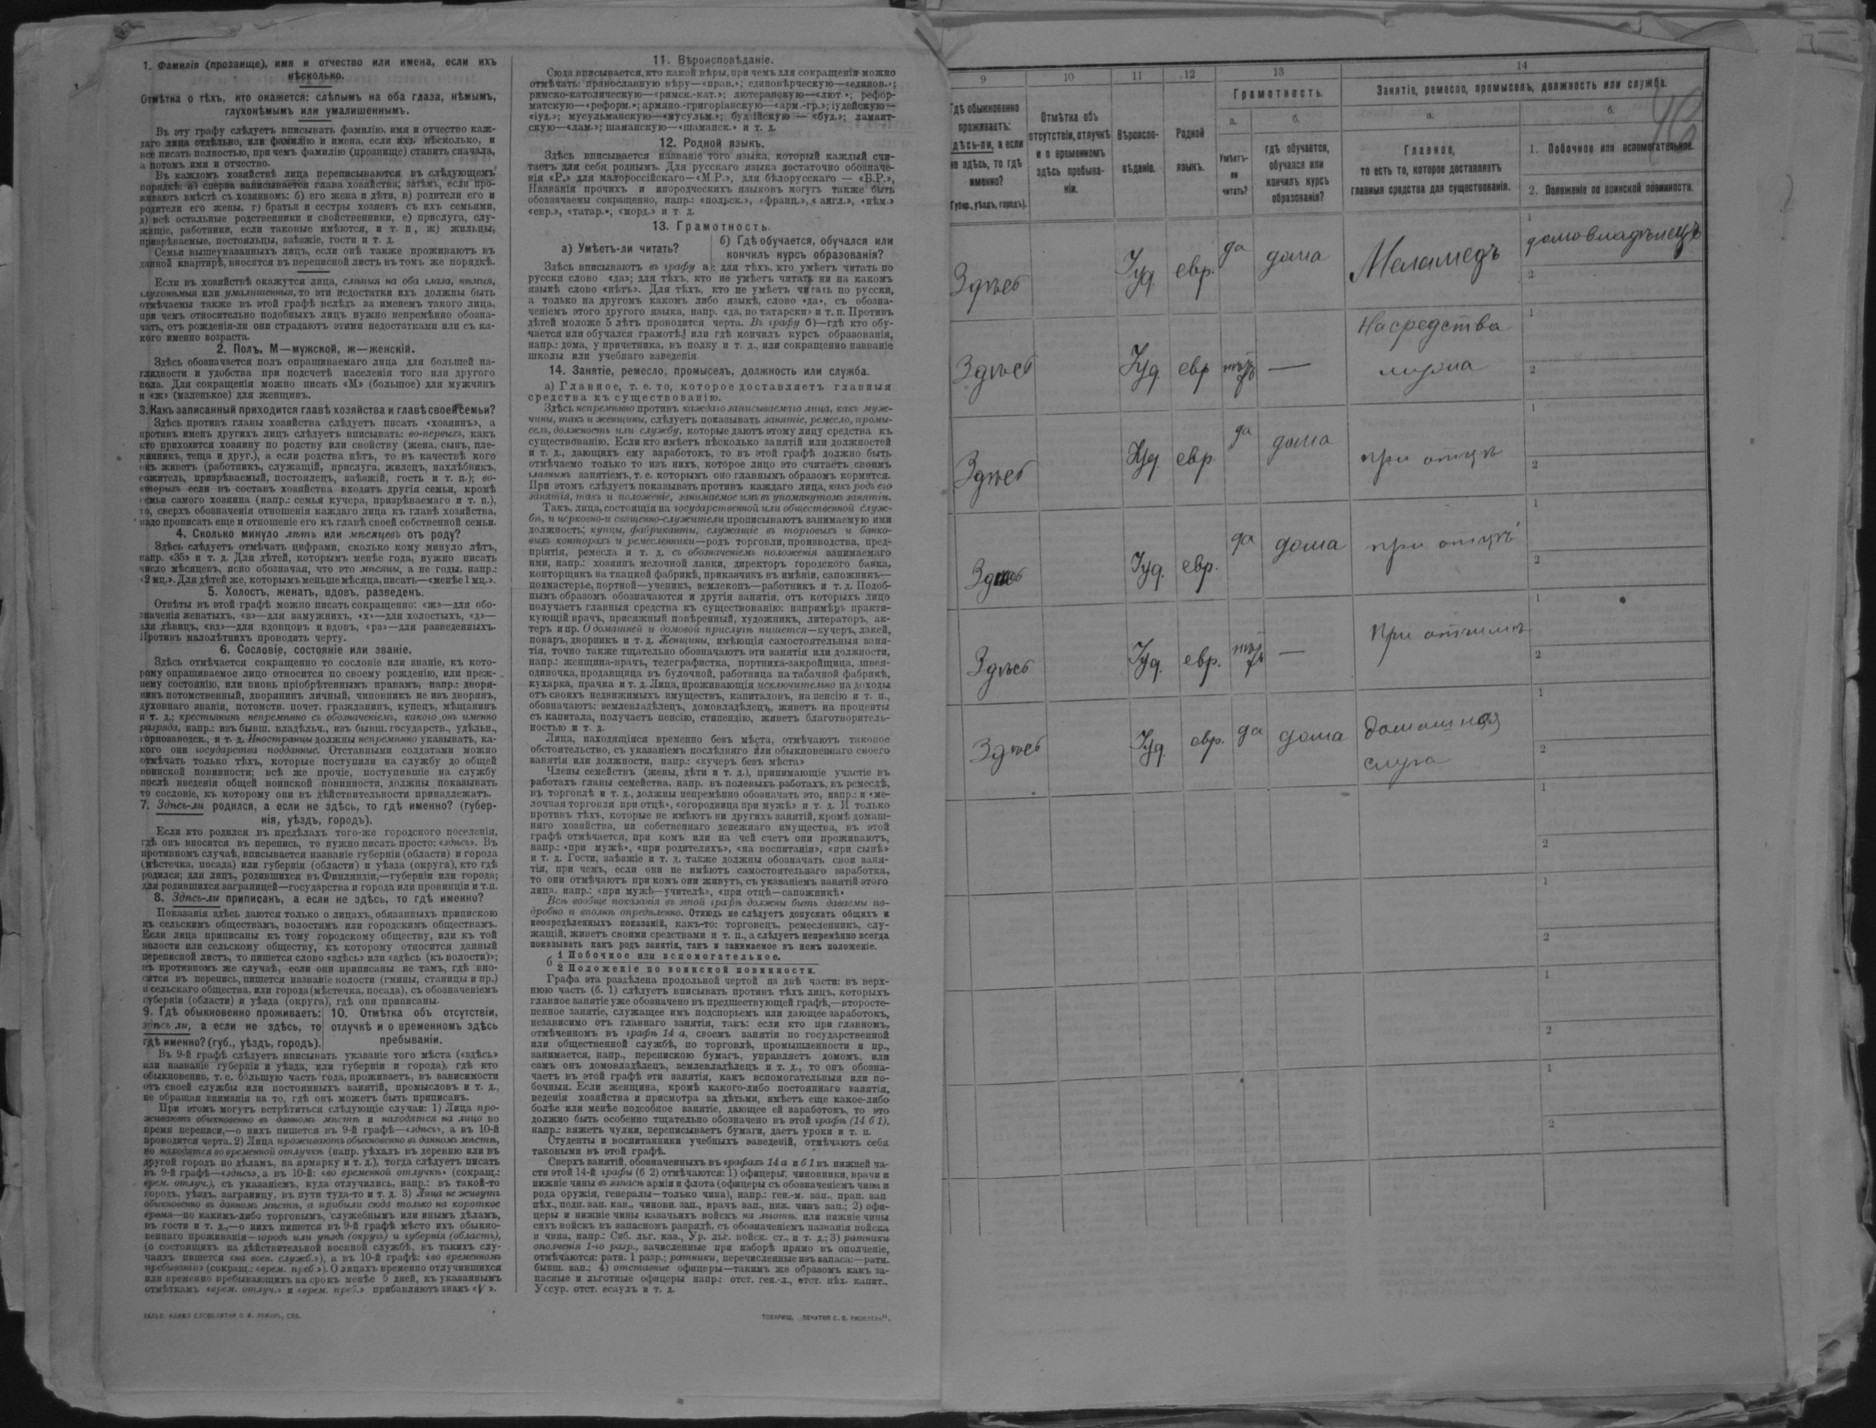 1. Фамилія (прозвище), имя и отчество или имена, если ихъ
нѣсколько.
Отмѣтка о тѣхъ, кто окажется: слѣпымъ на оба глаза, нѣмымъ,
глухонѣмымъ или умалишеннымъ.
Въ эту графу слѣдуетъ вписывать фамилію, имя и отчество каж-
даго лица отдѣльно, или фамилію и имена, если ихъ нѣсколько, и
все писать полностью, при чемъ фамилію (прозвище) ставить сначала,
а потомъ имя и отчество.
Въ каждомъ хозяйствѣ лица переписываются въ слѣдующемъ
порядкѣ: а) сперва записывается глава хозяйства; затѣмъ, если про-
живаютъ вмѣстѣ съ хозяиномъ: б) его жена и дѣти, в) родители его и
родители его жены, г) братья и сестры хозяевъ съ ихъ семьями,
д) всѣ остальные родственники и свойственники, е) прислуга, слу-
жащіе, работники, если таковые имѣются, и т. п., ж) жильцы,
призрѣваемые, постояльцы, заѣзжіе, гости и т. д.
Семьи вышеуказанныхъ лицъ, если онѣ также проживаютъ въ
данной квартирѣ, вносятся въ переписной листъ въ томъ же порядкѣ.
Если въ хозяйствѣ окажутся лица, слѣпыя на оба глаза, нѣмыя,
глухонѣмыя или умалишенныя, то эти недостатки ихъ должны быть
отмѣчаемы также въ этой графѣ вслѣдъ за именемъ такого лица,
при чемъ относительно подобныхъ лицъ нужно непремѣнно обозна-
чать, отъ рожденія-ли они страдаютъ этими недостатками или съ ка-
кого именно возраста.
2. Полъ. М—мужской, ж—женскій.
Здѣсь обозначается полъ опрашиваемаго лица для большей на-
глядности и удобства при подсчетѣ населенія того или другого
пола. Для сокращенія можно писать «М» (большое) для мужчинъ
и «ж» (маленькое) для женщинъ.
3. Какъ записанный приходится главѣ хозяйства и главѣ своей семьи?
Здѣсь противъ главы хозяйства слѣдуетъ писать «хозяинъ», а
противъ именъ другихъ лицъ слѣдуетъ вписывать: во-первыхъ, какъ
кто приходится хозяину по родству или свойству (жена, сынъ, пле-
мянникъ, теща и друг.), а если родства нѣтъ, то въ качествѣ кого
онъ живетъ (работникъ, служащій, прислуга, жилецъ, нахлѣбникъ,
сожитель, призрѣваемый, постоялецъ, заѣзжій, гость и т. п.); во-
вторыхъ если въ составъ хозяйства входятъ другія семьи, кромѣ
семьи самого хозяина (напр.: семья кучера, призрѣваемаго и т. п.),
то, сверхъ обозначенія отношенія каждаго лица къ главѣ хозяйства,
надо прописать еще и отношеніе его къ главѣ своей собственной семьи.
4. Сколько минуло лѣтъ или мѣсяцевъ отъ роду?
Здѣсь слѣдуетъ отмѣчать цифрами, сколько кому минуло лѣтъ,
напр. «35» и т. д. Для дѣтей, которымъ менѣе года, нужно писать
число мѣсяцевъ, ясно обозначая, что это мѣсяцы, а не годы, напр.:
«2 мц.». Для дѣтей же, которымъ меньше мѣсяца, писать—«менѣе 1 мц.».
5. Холостъ, женатъ, вдовъ, разведенъ.
Отвѣты въ этой графѣ можно писать сокращенно: «ж»—для обо-
значенія женатыхъ, «з»—для замужнихъ, «х»—для холостыхъ, «д»—
для дѣвицъ, «вд»—для вдовцовъ и вдовъ, «рз»—для разведенныхъ.
Противъ малолѣтнихъ проводить черту.
6. Сословіе, состояніе или званіе.
Здѣсь отмѣчается сокращенно то сословіе или званіе, къ кото-
рому опрашиваемое лицо относится по своему рожденію, или преж-
нему состоянію, или вновь пріобрѣтеннымъ правамъ, напр.: дворя-
нинъ потомственный, дворянинъ личный, чиновникъ не изъ дворянъ,
духовнаго званія, потомств. почет. гражданинъ, купецъ, мѣщанинъ
и т. д.; крестьянинъ непремѣнно съ обозначеніемъ, какого онъ именно
разряда, напр.: изъ бывш. владѣльч., изъ бывш. государств., удѣльн.,
горнозаводск., и т. д. Иностранцы должны непремѣнно указывать, ка-
кого они государства подданные. Отставными солдатами можно
отмѣчать только тѣхъ, которые поступили на службу до общей
воинской повинности; всѣ же прочіе, поступившіе на службу
послѣ введенія общей воинской повинности, должны показывать
то сословіе, къ которому они въ дѣйствительности принадлежатъ.
7. Здѣсь-ли родился, а если не здѣсь, то гдѣ именно? (губер-
нія, уѣздъ, городъ).
Если кто родился въ предѣлахъ того-же городского поселенія,
гдѣ онъ вносится въ перепись, то нужно писать просто: «здѣсь». Въ
противномъ случаѣ, вписывается названіе губерніи (области) и города
(мѣстечка, посада) или губерніи (области) и уѣзда (округа), кто гдѣ
родился; для лицъ, родившихся въ Финляндіи,—губерніи или города;
для родившихся заграницей—государства и города или провинціи и т.п.
8. Здѣсь-ли приписанъ, а если не здѣсь, то гдѣ именно?
Показанія здѣсь даются только о лицахъ, обязанныхъ припискою
къ сельскимъ обществамъ, волостямъ или городскимъ обществамъ.
Если лица приписаны къ тому городскому обществу, или къ той
волости или сельскому обществу, къ которому относится данный
переписной листъ, то пишется слово «здѣсь» или «здѣсь (къ волости)»;
въ противномъ же случаѣ, если они приписаны не тамъ, гдѣ вно-
сятся въ перепись, пишется названіе волости (гмины, станицы и пр.)
и сельскаго общества, или города (мѣстечка, посада), съ обозначеніемъ
губерніи (области) и уѣзда (округа), гдѣ они приписаны.
9. Гдѣ обыкновенно проживаетъ:
здѣсь ли, а если не здѣсь, то
гдѣ именно? (губ., уѣздъ, городъ).
10. Отмѣтка объ отсутствіи,
отлучкѣ и о временномъ здѣсь
пребываніи.
Въ 9-й графѣ слѣдуетъ вписывать указаніе того мѣста («здѣсь»
или названіе губерніи и уѣзда, или губерніи и города), гдѣ кто
обыкновенно, т. е. большую часть года, проживаетъ, въ зависимости
отъ своей службы или постоянныхъ занятій, промысловъ и т. д.,
не обращая вниманія на то, гдѣ онъ можетъ быть приписанъ.
При этомъ могутъ встрѣтиться слѣдующіе случаи: 1) Лица про-
живаютъ обыкновенно въ данномъ мѣстѣ и находятся на лицо во
время переписи,—о нихъ пишется въ 9-й графѣ—«здѣсь», а въ 10-й
проводится черта. 2) Лица проживаютъ обыкновенно въ данномъ мѣстѣ,
но находятся во временной отлучкѣ (напр. уѣхалъ въ деревню или въ
другой городъ по дѣламъ, на ярмарку и т. д.), тогда слѣдуетъ писать
въ 9-й графѣ—«здѣсь», а въ 10-й: «во временной отлучкѣ» (сокращ.:
врем. отлуч.), съ указаніемъ, куда отлучились, напр.: въ такой-то
городъ, уѣздъ, заграницу, въ пути туда-то и т. д. 3) Лица не живутъ
обыкновенно въ данномъ мѣстѣ, а прибыли сюда только на короткое
время—по какимъ-либо торговымъ, служебнымъ или инымъ дѣламъ,
въ гости и т. д.,—о нихъ пишется въ 9-й графѣ мѣсто ихъ обыкно-
веннаго проживанія—городъ или уѣздъ (округъ) и губернія (область),
(о состоящихъ на дѣйствительной военной службѣ, въ такихъ слу-
чаяхъ пишется «на воен. службѣ»), а въ 10-й графѣ: «во временномъ
пребываніи» (сокращ.: «врем. преб.»). О лицахъ временно отлучившихся
или временно пребывающихъ на срокъ менѣе 5 дней, къ указаннымъ
отмѣткамъ «врем. отлуч.» и «врем. преб.» прибавляютъ знакъ «V».
11. Вѣроисповѣданіе.
Сюда вписывается, кто какой вѣры, при чемъ для сокращенія можно
отмѣчать: православную вѣру—«прав.»; единовѣрческую—«единов.»;
римско-католическую—«римск.-кат.»; лютеранскую—«лют.»; рефор-
матскую—«реформ.»; армяно-григоріанскую—«арм.-гр.»; іудейскую—
«іуд.»; мусульманскую—«мусульм.»; буддійскую — «буд.»; ламаит-
скую—«лам.»; шаманскую—«шаманск.» и т. д.
12. Родной языкъ.
Здѣсь вписывается названіе того языка, который каждый счи-
таетъ для себя роднымъ. Для русскаго языка достаточно обозначе-
нія «Р.» для малороссійскаго—«М.Р.», для бѣлорусскаго — «Б.Р.»,
Названія прочихъ и инородческихъ языковъ могутъ также быть
обозначаемы сокращенно, напр.: «польск.», «франц.», «англ.», «нѣм.»
«евр.», «татар.», «морд.» и т. д.
13. Грамотность.
а) Умѣетъ-ли читать?
б) Гдѣ обучается, обучался или
кончилъ курсъ образованія?
Здѣсь вписываютъ въ графу а): для тѣхъ, кто умѣетъ читать по
русски слово «да»; для тѣхъ, кто не умѣетъ читать ни на какомъ
языкѣ слово «нѣтъ». Для тѣхъ, кто не умѣетъ читать по русски,
а только на другомъ какомъ либо языкѣ, слово «да», съ обозна-
ченіемъ этого другого языка, напр. «да, по татарски» и т. п. Противъ
дѣтей моложе 5 лѣтъ проводится черта. Въ графу б)—гдѣ кто обу-
чается или обучался грамотѣ, или гдѣ кончилъ курсъ образованія,
напр.: дома, у причетника, въ полку и т. д., или сокращенно названіе
школы или учебнаго заведенія.
14. Занятіе, ремесло, промыселъ, должность или служба.
а) Главное, т. е. то, которое доставляетъ главныя
средства къ существованію.
Здѣсь непремѣнно противъ каждаго записываемаго лица, какъ муж-
чины, такъ и женщины, слѣдуетъ показывать занятіе, ремесло, промы-
селъ, должность или службу, которые даютъ этому лицу средства къ
существованію. Если кто имѣетъ нѣсколько занятій или должностей
и т. д., дающихъ ему заработокъ, то въ этой графѣ должно быть
отмѣчаемо только то изъ нихъ, которое лицо это считаетъ своимъ
главнымъ занятіемъ, т. е. которымъ оно главнымъ образомъ кормится.
При этомъ слѣдуетъ показывать противъ каждаго лица, какъ родъ его
занятія, такъ и положеніе, занимаемое имъ въ упомянутомъ занятіи.
Такъ, лица, состоящія на государственной или общественной служ-
бѣ, и церковно-и священно-служители прописываютъ занимаемую ими
должность; купцы, фабриканты, служащіе въ торговыхъ и банко-
выхъ конторахъ и ремесленники—родъ торговли, производства, пред-
пріятія, ремесла и т. д. съ обозначеніемъ положенія занимаемаго
ими, напр.: хозяинъ мелочной лавки, директоръ городского банка,
конторщикъ на ткацкой фабрикѣ, приказчикъ въ имѣніи, сапожникъ—
подмастерье, портной—ученикъ, землекопъ—работникъ и т. д. Подоб-
нымъ образомъ обозначаются и другія занятія, отъ которыхъ лицо
получаетъ главныя средства къ существованію: напримѣръ практи-
кующій врачъ, присяжный повѣренный, художникъ, литераторъ, ак-
теръ и пр. О домашней и домовой прислугѣ пишется—кучеръ, лакей,
поваръ, дворникъ и т. д. Женщины, имѣющія самостоятельныя заня-
тія, точно также тщательно обозначаютъ эти занятія или должности,
напр.: женщина-врачъ, телеграфистка, портниха-закройщица, швея-
одиночка, продавщица въ булочной, работница на табачной фабрикѣ,
кухарка, прачка и т. д. Лица, проживающія исключительно на доходы
отъ своихъ недвижимыхъ имуществъ, капиталовъ, на пенсію и т. п.,
обозначаютъ: землевладѣлецъ, домовладѣлецъ, живетъ на проценты
съ капитала, получаетъ пенсію, стипендію, живетъ благотворитель-
ностью и т. д.
Лица, находящіяся временно безъ мѣста, отмѣчаютъ таковое
обстоятельство, съ указаніемъ послѣдняго или обыкновеннаго своего
занятія или должности, напр.: «кучеръ безъ мѣста»
Члены семействъ (жены, дѣти и т. д.), принимающіе участіе въ
работахъ главы семейства, напр. въ полевыхъ работахъ, въ ремеслѣ,
въ торговлѣ и т. д., должны непремѣнно обозначать это, напр.: и «ме-
лочная торговля при отцѣ», «огородница при мужѣ» и т. д. И только
противъ тѣхъ, которые не имѣютъ ни другихъ занятій, кромѣ домаш-
няго хозяйства, ни собственнаго денежнаго имущества, въ этой
графѣ отмѣчается, при комъ или на чей счетъ они проживаютъ,
напр.: «при мужѣ», «при родителяхъ», «на воспитаніи», «при сынѣ»
и т. д. Гости, заѣзжіе и т. д. также должны обозначать свои заня-
тія, при чемъ, если они не имѣютъ самостоятельнаго заработка,
то они отмѣчаютъ при комъ они живутъ, съ указаніемъ занятій этого
лица, напр.: «при мужѣ—учителѣ», «при отцѣ—сапожникѣ»
Всѣ вообще показанія въ этой графѣ должны быть даваемы по-
дробно и вполнѣ опредѣленно. Отнюдь не слѣдуетъ допускать общихъ и
неопредѣленныхъ показаній, какъ-то: торговецъ, ремесленникъ, слу-
жащій, живетъ своими средствами и т. п., а слѣдуетъ непремѣнно всегда
показывать какъ родъ занятія, такъ и занимаемое въ немъ положеніе.
б 1 Побочное или вспомогательное.
2 Положеніе по воинской повинности.
Графа эта раздѣлена продольной чертой на двѣ части: въ верх-
нюю часть (б. 1) слѣдуетъ вписывать противъ тѣхъ лицъ, которыхъ
главное занятіе уже обозначено въ предшествующей графѣ,—второсте-
пенное занятіе, служащее имъ подспорьемъ или дающее заработокъ,
независимо отъ главнаго занятія, такъ: если кто при главномъ,
отмѣченномъ въ графѣ 14 а, своемъ занятіи по государственной
или общественной службѣ, по торговлѣ, промышленности и пр.,
занимается, напр., перепискою бумагъ, управляетъ домомъ, или
самъ онъ домовладѣлецъ, землевладѣлецъ и т. д., то онъ обозна-
чаетъ въ этой графѣ эти занятія, какъ вспомогательныя или по-
бочныя. Если женщина, кромѣ какого-либо постояннаго занятія,
веденія хозяйства и присмотра за дѣтьми, имѣетъ еще какое-либо
болѣе или менѣе подсобное занятіе, дающее ей заработокъ, то это
должно быть особенно тщательно обозначено въ этой графѣ (14 б 1),
напр.: вяжетъ чулки, переписываетъ бумаги, даетъ уроки и т. п.
Студенты и воспитанники учебныхъ заведеній, отмѣчаютъ себя
таковыми въ этой графѣ.
Сверхъ занятій, обозначенныхъ въ графахъ 14 а и б 1 въ нижней ча-
сти этой 14-й графы (б 2) отмѣчаются: 1) офицеры, чиновники, врачи и
нижніе чины въ запасѣ арміи и флота (офицеры съ обозначеніемъ чина и
рода оружія, генералы—только чина), напр.: ген.-м. зап., прап. зап
пѣх., подп. зап. кав., чиновн. зап., врачъ зап., ниж. чинъ зап.; 2) офи-
церы и нижніе чины казачьихъ войскъ на льготѣ, или нижніе чины
сихъ войскъ въ запасномъ разрядѣ, съ обозначеніемъ названія войска
и чина, напр.: Сиб. льг. каз., Ур. льг. войск. ст., и т. д.; 3) ратники
ополченія 1-го разр., зачисленные при наборѣ прямо въ ополченіе,
отмѣчаются: ратн. 1 разр.; ратники, перечисленные изъ запаса:—ратн.
бывш. зап.; 4) отставные офицеры—такимъ же образомъ какъ за-
пасные и льготные офицеры напр.: отст. ген.-л., отст. пѣх. капит.,
Уссур. отст. есаулъ и т. д.
9 10 11 12 13 14
Гдѣ обыкновенно
проживаетъ:
здѣсь-ли, а если
не здѣсь, то гдѣ
именно?
(Губер., уѣздъ, городъ).
Отмѣтка объ
отсутствіи, отлучкѣ
и о временномъ
здѣсь пребыва-
ніи.
Вѣроиспо-
вѣданіе.
Родной
языкъ.
Грамотность.
а.
Умѣетъ-
ли
читать?
б.
гдѣ обучается,
обучался или
кончилъ курсъ
образованія?
Занятіе, ремесло, промыселъ, должность или служба.
а.
Главное,
то есть то, которое доставляетъ
главныя средства для существованія.
б.
1. Побочное или вспомогательное.
2. Положеніе по воинской повинности.
Здѣсь Іуд. евр. да дома Меламедъ 1 домовладѣлецъ
2
Здѣсь Іуд евр нѣтъ — На средства 1
мужа 2
Здѣсь Іуд евр. да дома при отцѣ 1
2
Здѣсь Іуд. евр. да дома при отцѣ 1
2
Здѣсь Іуд. евр. нѣтъ — При 1
2
Здѣсь Іуд. евр. да дома Домашняя 1
слуга 2
1
2
1
2
1
2
1
2